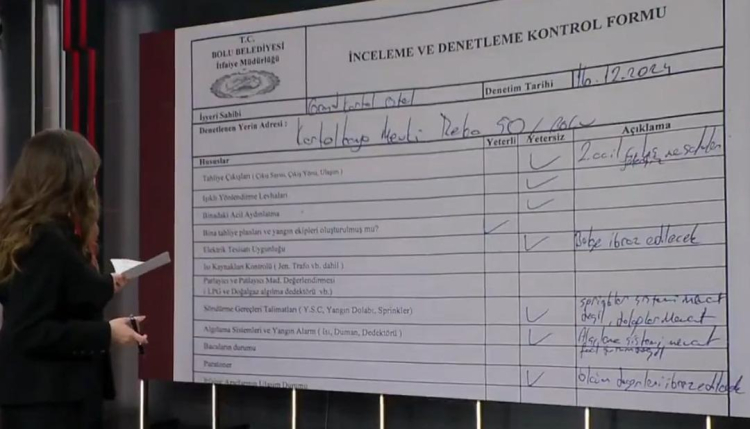 T.C.
BOLU BELEDİYESİ
İtfaiye Müdürlüğü
İNCELEME VE DENETLEME KONTROL FORMU
Denetim Tarihi 16.12.2024
İşyeri Sahibi Grand Kartal Otel
Denetlenen Yerin Adresi : Kartalkaya Mevki
Hususlar Yeterli Yetersiz Açıklama
Tahliye Çıkışları ( Çıkış Sayısı, Çıkış Yönü, Ulaşım )
2. acil
Işıklı Yönlendirme Levhaları
Binadaki Acil Aydınlatma
Bina tahliye planları ve yangın ekipleri oluşturulmuş mu?
Elektrik Tesisatı Uygunluğu
Belge ibraz edilecek
Isı Kaynakları Kontrolü ( Jen. Trafo vb. dahil )
Parlayıcı ve Patlayıcı Mad. Değerlendirmesi
( LPG ve Doğalgaz algılma dedektörü vb.)
Söndürme Gereçleri Talimatları ( Y.S.C, Yangın Dolabı, Sprinkler)
sprinkler sistemi mevcut
değil, dolaplar mevcut
Algılama Sistemleri ve Yangın Alarm ( Isı, Duman, Dedektörü )
Algılama sistemi mevcut
Bacaların durumu
Paratoner
ölçüm değerleri ibraz edilecek
İtfaiye Araçlarının Ulaşım Durumu